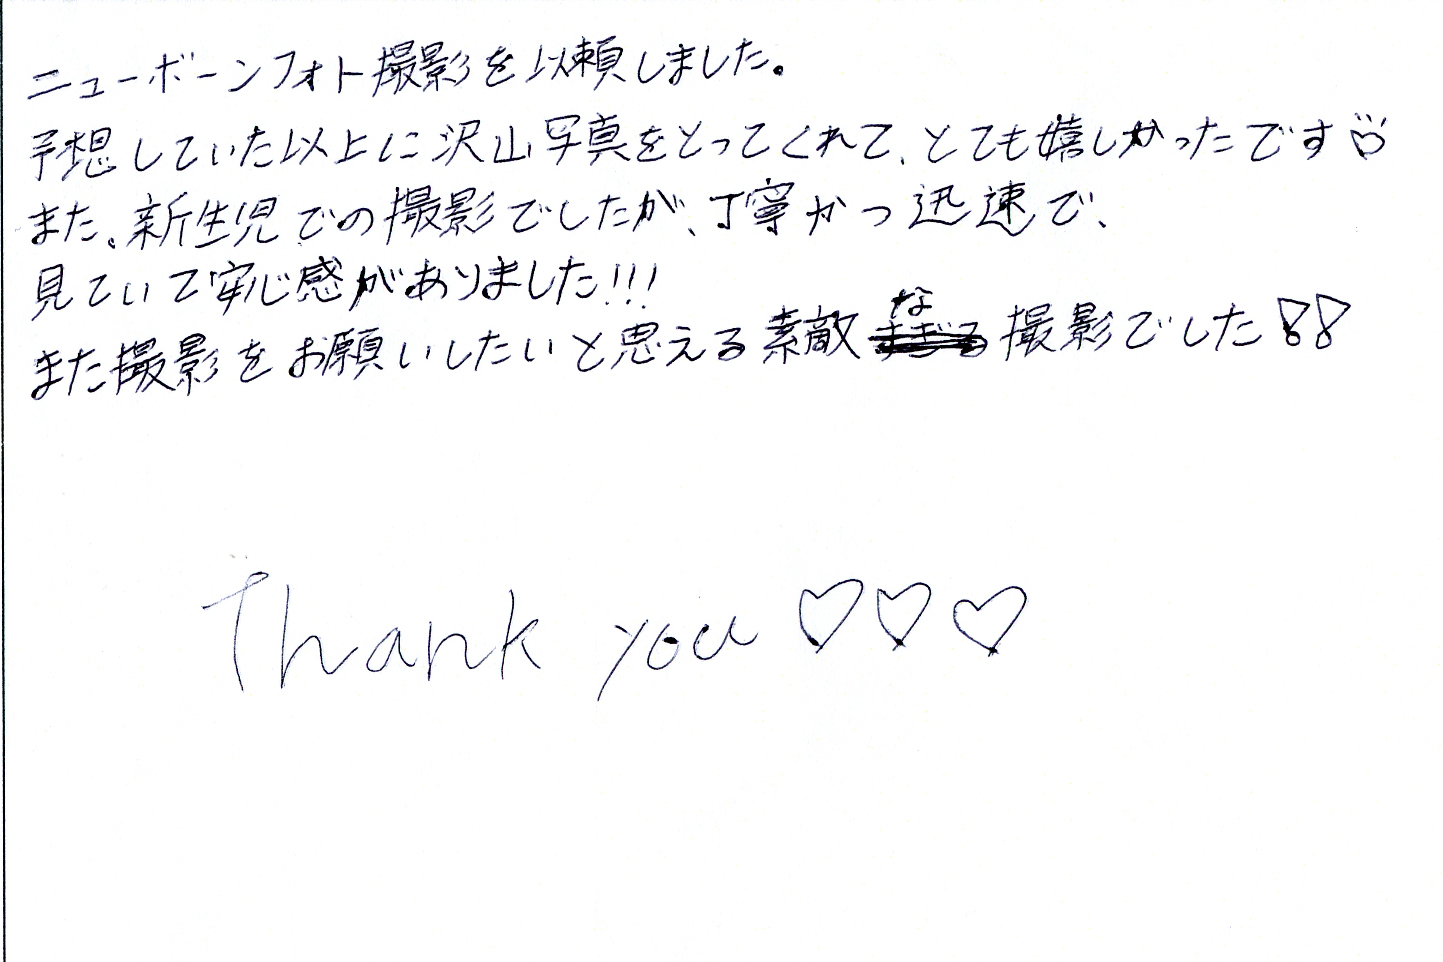 ニューボーンフォト撮影を以頼しました。
予想していた以上に沢山写真をとってくれて、とても嬉しかったです
また。新生児での撮影でしたが、丁寧かつ迅速で、
見ていて安心感がありました!!!
また撮影をお願いしたいと思える素敵な撮影でした!!
Thank you ♡♡♡